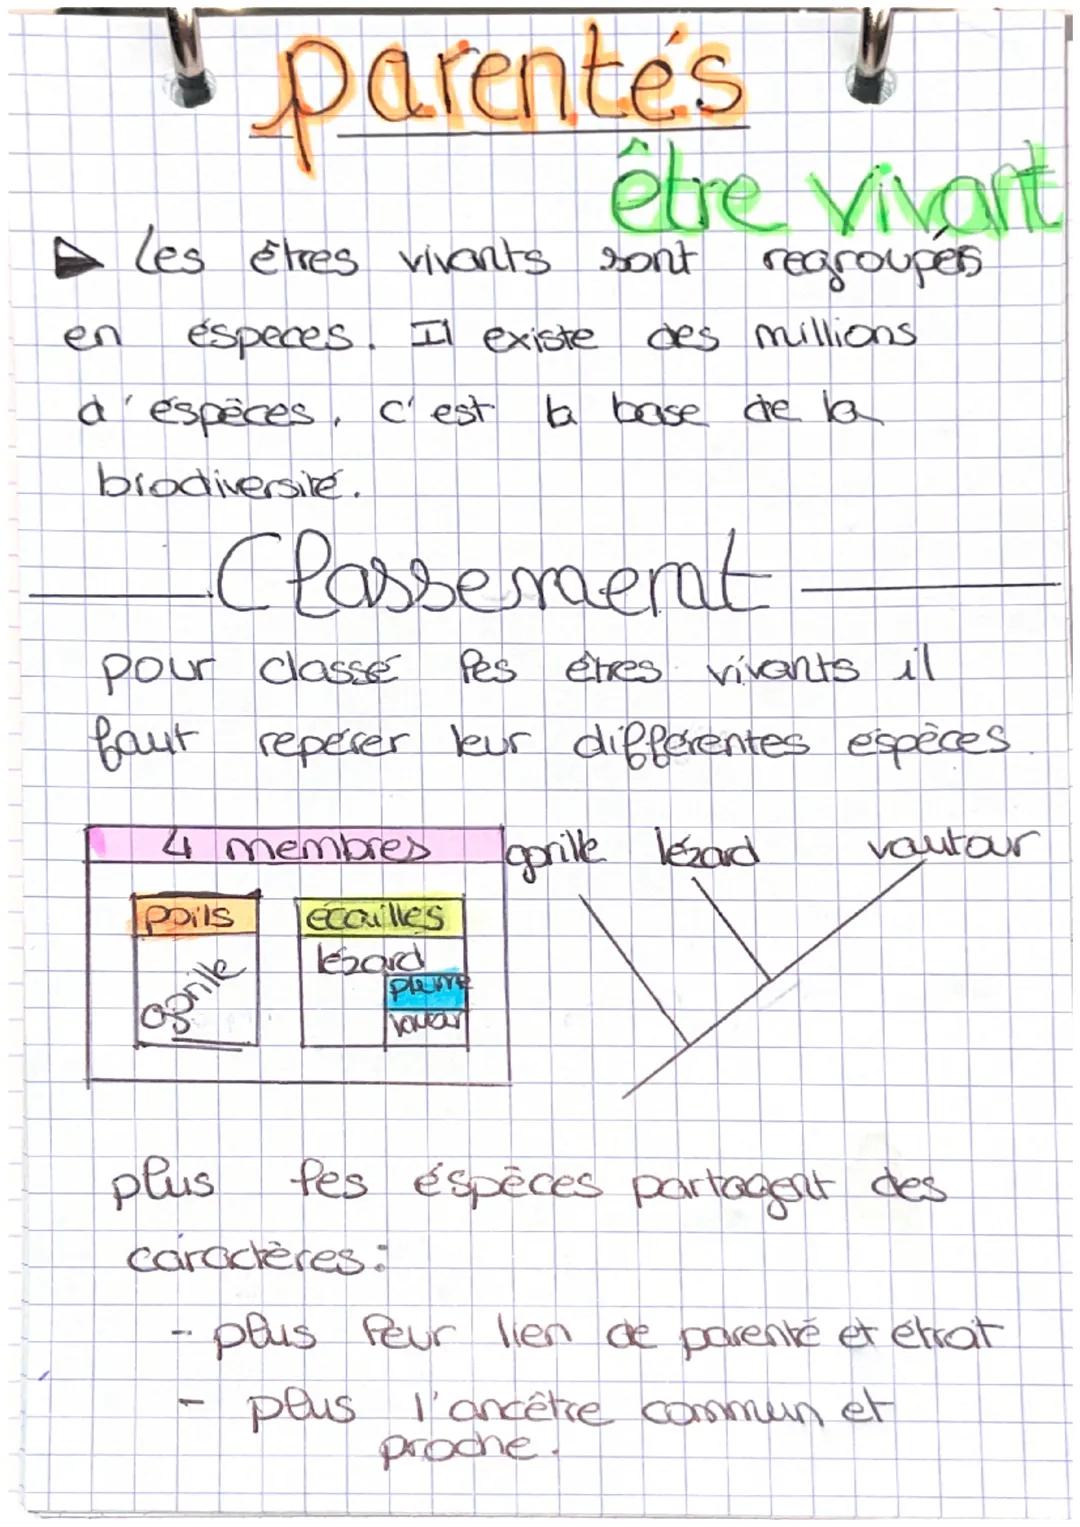 parentés
être vivant
Les êtres vivants sont regroupés
en éspeces. Il existe des millions
d'éspèces, c'est la base de la
biodiversité.
Classement
pour classé les êtres vivants il
faut repérer leur différentes espèces.
4 membres
poils
gorille
écailles
lézard
plume
gorille lézard vautour
plus les éspèces partagent des
caractères:
- plus leur lien de parenté et étroit
- plus l'ancêtre commun et
proche.